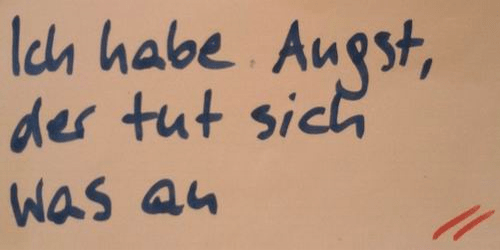 Ich habe Angst,
der tut sich
was an